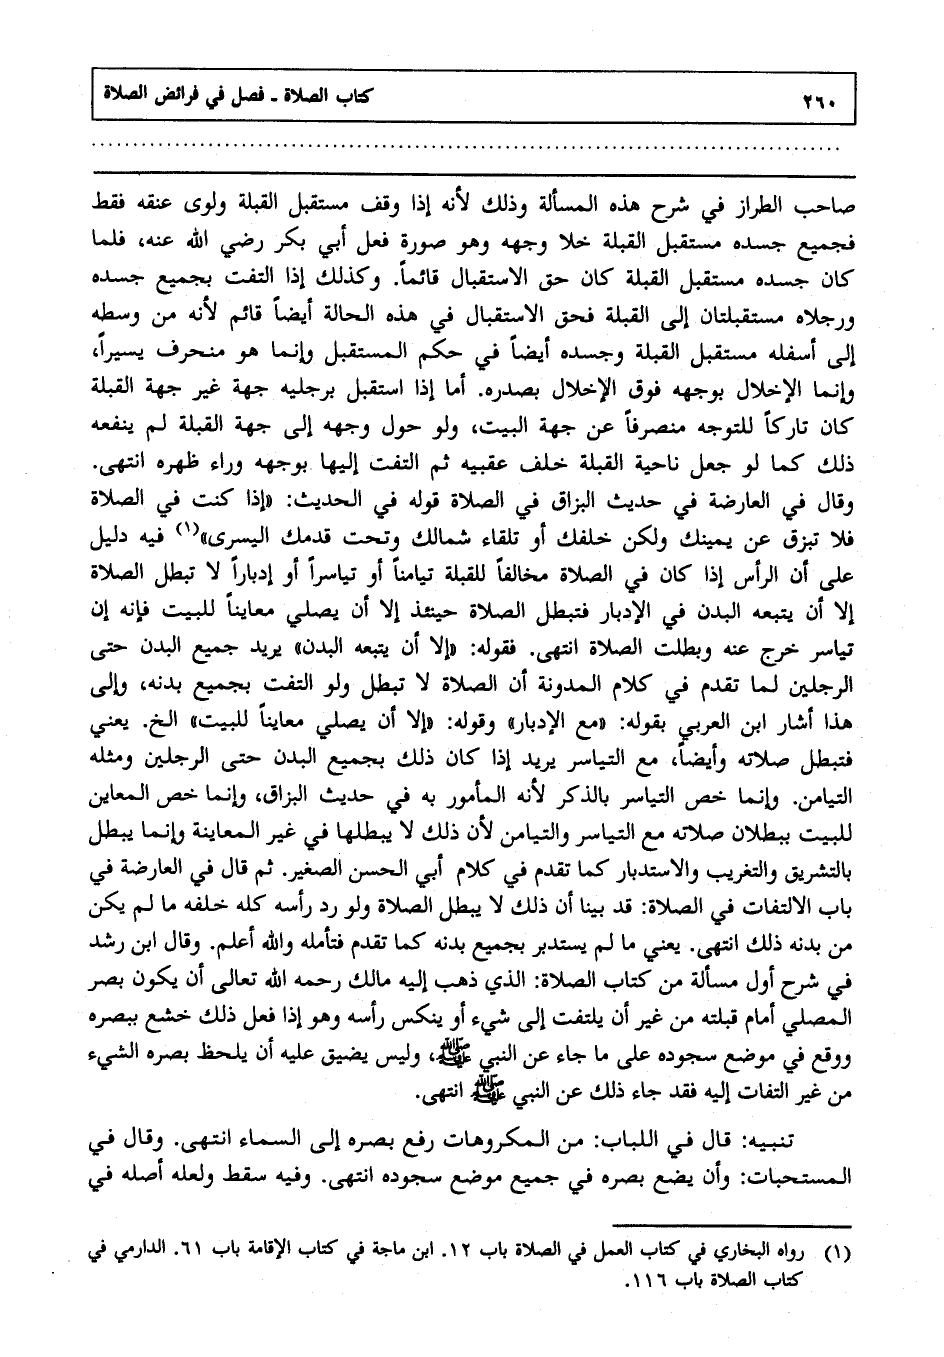 ٢٦٠
كتاب الصلاة ـ فصل في فرائض الصلاة
صاحب الطراز في شرح هذه المسألة وذلك لأنه إذا وقف مستقبل القبلة ولوى عنقه فقط
فجميع جسده مستقبل القبلة خلا وجهه وهو صورة فعل أبي بكر رضي الله عنه، فلما
كان جسده مستقبل القبلة كان حق الاستقبال قائماً. وكذلك إذا التفت بجميع جسده
ورجلاه مستقبلتان إلى القبلة فحق الاستقبال في هذه الحالة أيضاً قائم لأنه من وسطه
إلى أسفله مستقبل القبلة وجسده أيضاً في حكم المستقبل وإنما هو منحرف يسيراً،
وإنما الإخلال بوجهه فوق الإخلال بصدره. أما إذا استقبل برجليه جهة غير جهة القبلة
كان تاركاً للتوجه منصرفاً عن جهة البيت، ولو حول وجهه إلى جهة القبلة لم ينفعه
ذلك كما لو جعل ناحية القبلة خلف عقبيه ثم التفت إليها بوجهه وراء ظهره انتهى.
وقال في العارضة في حديث البزاق في الصلاة قوله في الحديث: «إذا كنت في الصلاة
فلا تبزق عن يمينك ولكن خلفك أو تلقاء شمالك وتحت قدمك اليسرى»(١) فيه دليل
على أن الرأس إذا كان في الصلاة مخالفاً للقبلة تيامناً أو تياسراً أو إدباراً لا تبطل الصلاة
إلا أن يتبعه البدن في الإدبار فتبطل الصلاة حينئذ إلا أن يصلي معايناً للبيت فإنه إن
تياسر خرج عنه وبطلت الصلاة انتهى. فقوله: «إلا أن يتبعه البدن» يريد جميع البدن حتى
الرجلين لما تقدم في كلام المدونة أن الصلاة لا تبطل ولو التفت بجميع بدنه، وإلى
هذا أشار ابن العربي بقوله: «مع الإدبار» وقوله: «إلا أن يصلي معايناً للبيت» الخ. يعني
فتبطل صلاته وأيضاً، مع التياسر يريد إذا كان ذلك بجميع البدن حتى الرجلين ومثله
التيامن. وإنما خص التياسر بالذكر لأنه المأمور به في حديث البزاق، وإنما خص المعاين
للبيت ببطلان صلاته مع التياسر والتيامن لأن ذلك لا يبطلها في غير المعاينة وإنما يبطل
بالتشريق والتغريب والاستدبار كما تقدم في كلام أبي الحسن الصغير. ثم قال في العارضة في
باب الالتفات في الصلاة: قد بينا أن ذلك لا يبطل الصلاة ولو رد رأسه كله خلفه ما لم يكن
من بدنه ذلك انتهى. يعني ما لم يستدبر بجميع بدنه كما تقدم فتأمله والله أعلم. وقال ابن رشد
في شرح أول مسألة من كتاب الصلاة: الذي ذهب إليه مالك رحمه الله تعالى أن يكون بصر
المصلي أمام قبلته من غير أن يلتفت إلى شيء أو ينكس رأسه وهو إذا فعل ذلك خشع ببصره
ووقع في موضع سجوده على ما جاء عن النبي ﷺ، وليس يضيق عليه أن يلحظ بصره الشيء
من غير التفات إليه فقد جاء ذلك عن النبي ﷺ انتهى.
تنبيه: قال في اللباب: من المكروهات رفع بصره إلى السماء انتهى. وقال في
المستحبات: وأن يضع بصره في جميع موضع سجوده انتهى. وفيه سقط ولعله أصله في
(١) رواه البخاري في كتاب العمل في الصلاة باب ١٢. ابن ماجة في كتاب الإقامة باب ٦١. الدارمي في
كتاب الصلاة باب ١١٦.